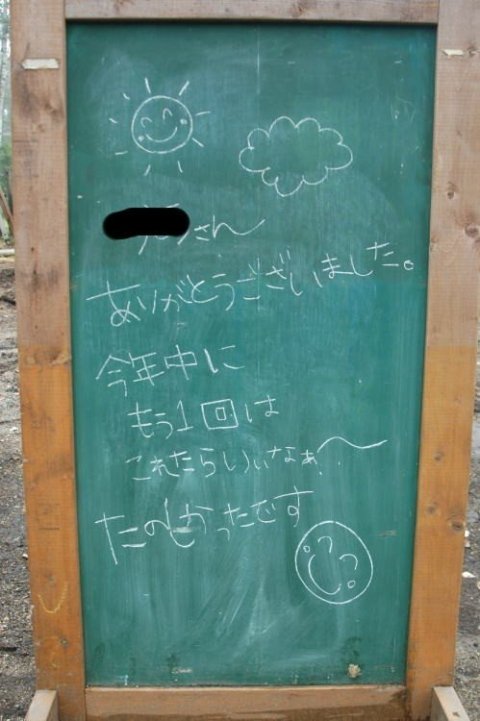 さん〜
ありがとうございました。
今年中に
もう1回は
これたらいいなぁ〜
たのしかったです